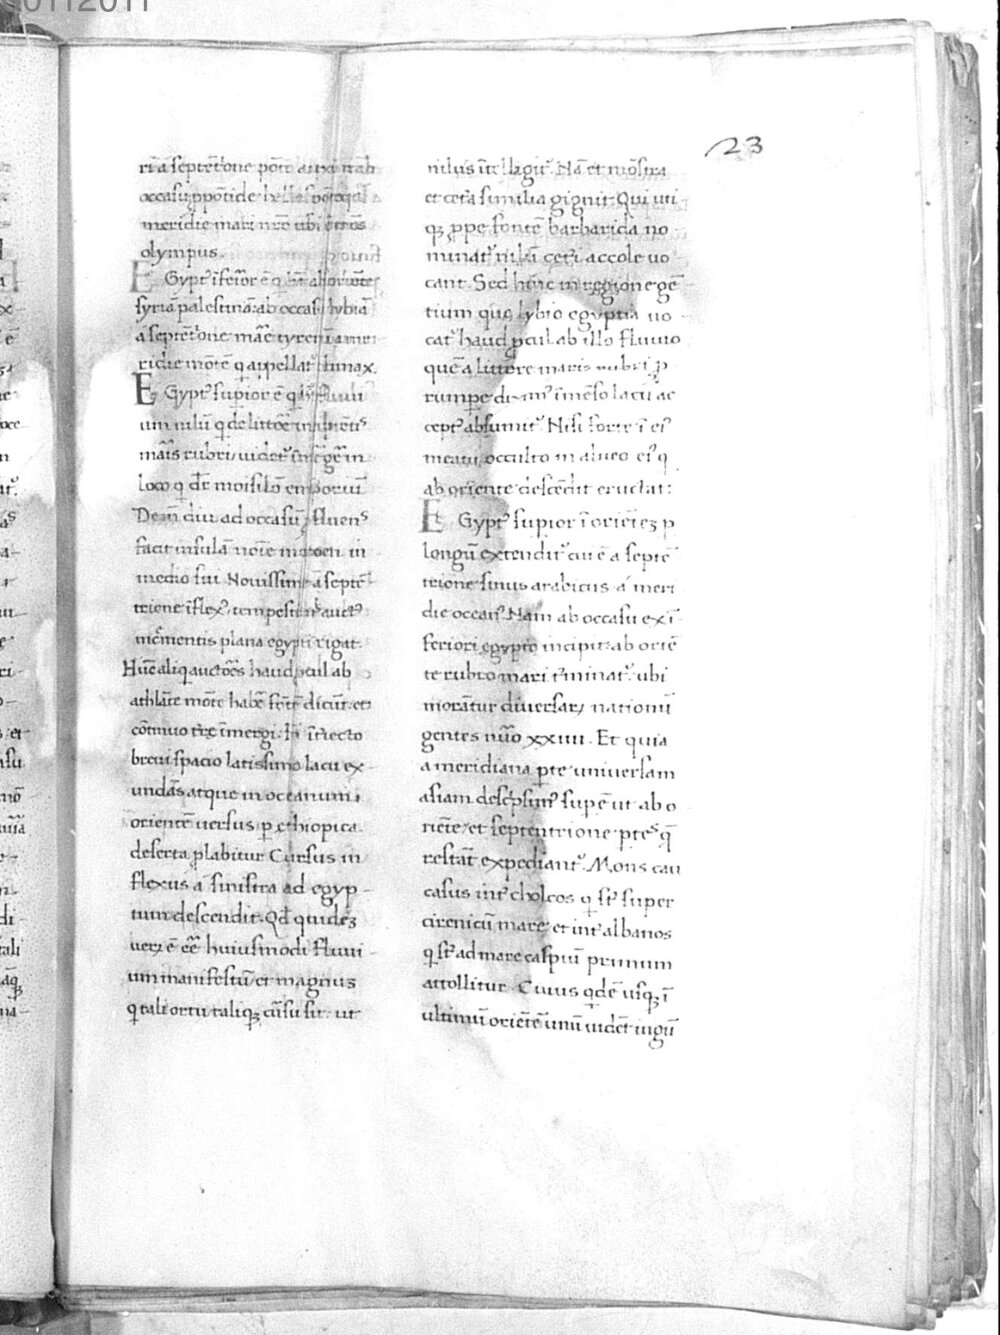 23
ria septẽtrione põti euxini ab
occasu ppõtide
meridie mari nrõ ubi ẽ mõs
olympus.
Egypt' ĩferior ẽ q
syriã palestinã ab occasu lybiã
a septẽtrione mãe tyrenũ a me
ridie mõtẽ q appellat' climax.
Egypt' supior ẽ q fluui
um nilũ q de littoẽ incipiẽtis
mãis rubri uidet' emgẽ in
loco q dr̃ moisilõ emporiũ
Deiñ diu ad occasũ fluens
facit insulã noĩe meroen in
medio sui Nouissime a septẽ
trione ĩflex' tempestiuis auct'
incrementis plana egypti rigat.
Hũc aliq auctoẽs haud pcul ab
athlãte mõte habẽ fõtẽ dicũt. et
cõtinuo arenis ĩmergi. Iñ ĩtiecto
breui spacio latissimo lacu ex
undãs atque in oceanum
orientẽ uersus p ethiopica
deserta plabitur Cursus in
flexus a sinistra ad egyp
tum descendit. Qd quidẽ
ueꝝ ẽ eẽ huiusmodi fluui
um manifestũ et magnus
q tali ortu taliqꝫ cũsu sit. ut
nilus ĩtelligit'. Nã et mõstra
et cetã similia gignit. Qui uti
qꝫ ppe fontẽ barbarica no
nunat' nilũ ceti accole uo
cant. Sed hunc in regione gẽ
tium que lybio egyptia uo
cat' haud pcul ab illo fluuio
quẽ a littore maris rubri p
rumpe ĩmẽso lacu ac
cept' absumit'. Nisi forte ĩ ei'
meatu occulto in alueo ei' q
ab oriente descẽdit eructat:
Egypt' supior ĩ oriẽteꝫ p
longũ extendit' cui ẽ a septẽ
trione sinus arabicus a meri
die occan' Nam ab occasu ex ĩ
feriori egypto incipit: ab oriẽ
te rubro mari t'minat'. ubi
moratur diuersaꝝ nationũ
gentes nũo xxiiii. Et quia
a meridiana pte uniuersam
asiam descpsim' supẽ ut ab o
riẽte et septentrione ptes q̃
restãt expediant'. Mons cau
casus int' cholcos q st' super
cirenicũ mare et int' albanos
q st' ad mare caspiũ primum
attollitur. Cuius qdẽ usqꝫ ĩ
ultimũ oriẽtẽ unũ uidet' iugũ